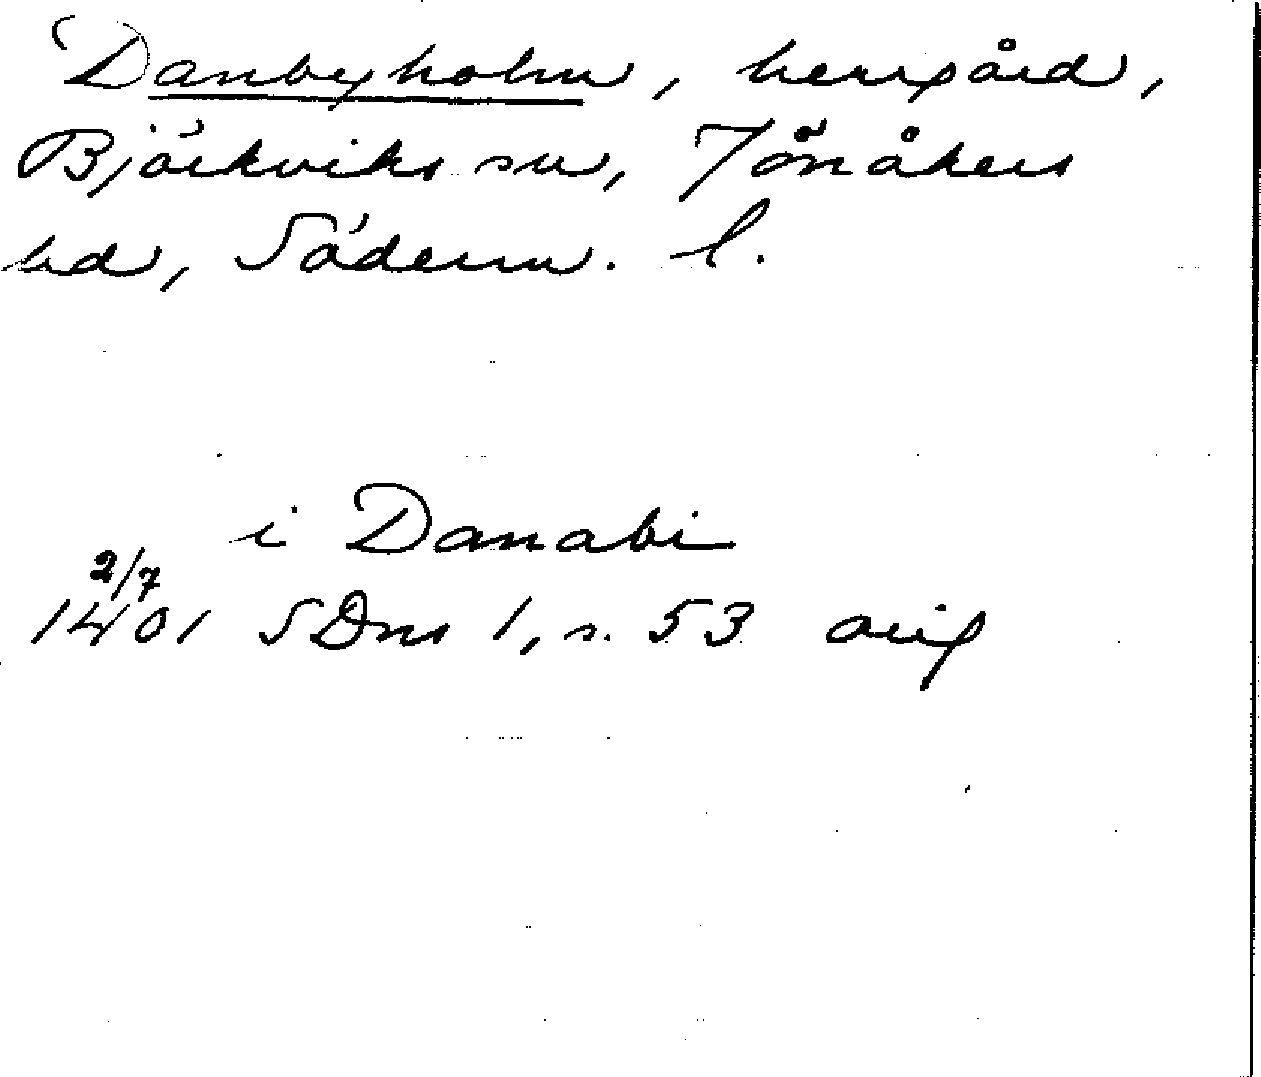 Danbyholm, herrgård,
Björkviks sn, Jönåkers
hd, Söderm. l.
i Danabi
2/7
1401 SDns 1, s. 53 orig